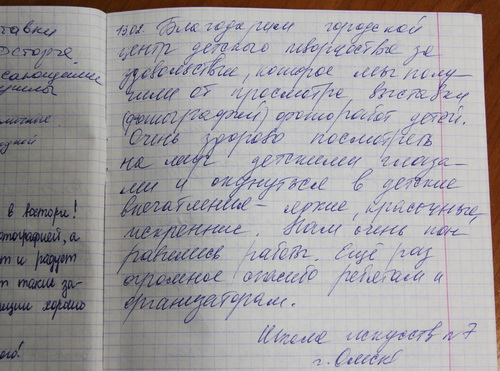 тавки
сающими
в восторге!
тографией, а
т и радует
т такие за-
хорошо
19.02. Благодарим городской
центр детского творчества за
удовольствие, которое мы полу-
чили от просмотра выставки
(фотографий) фоторабот детей.
Очень здорово посмотреть
на мир детскими глаза-
ми и окунуться в детские
впечатления - яркие, красочные,
искренние. Нам очень пон-
равились работы. Ещё раз
огромное спасибо ребятам и
организаторам.
Школа искусств №7
г. Омск